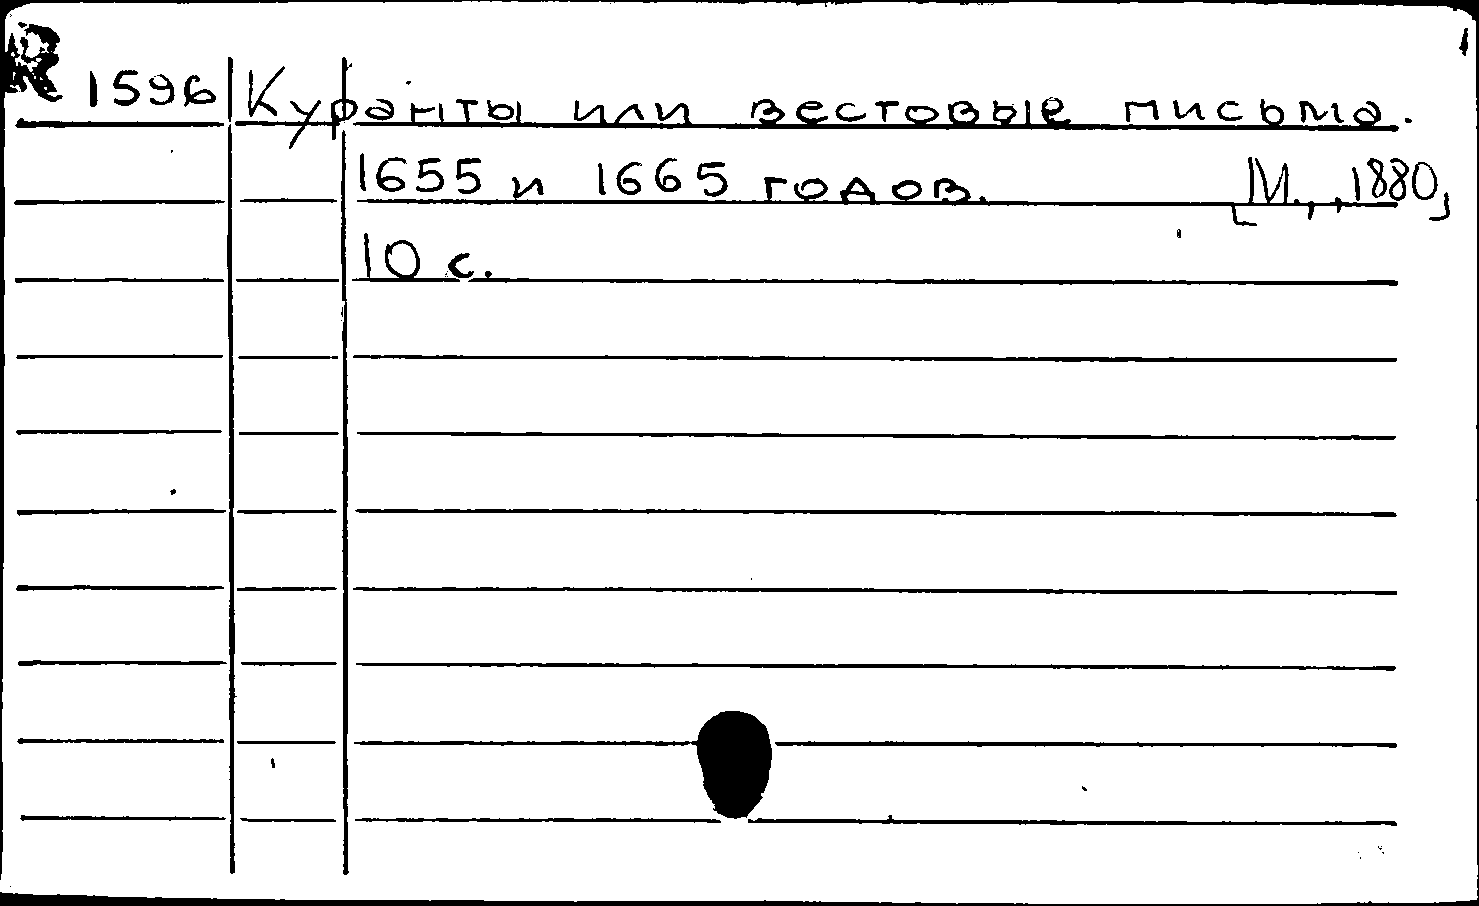 R 1596 Куранты или вестовые письма.
1655 и 1665 годов. [М., 1880]
10 с.